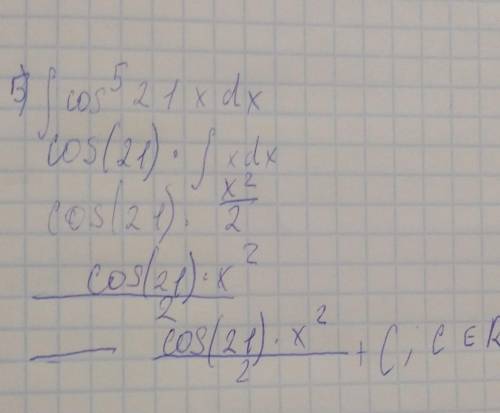 5) ∫ cos⁵ 21 x dx
cos(21) · ∫ x dx
cos(21) · x²/2
cos(21) · x² / 2
cos(21) · x² / 2 + C, C ∈ R